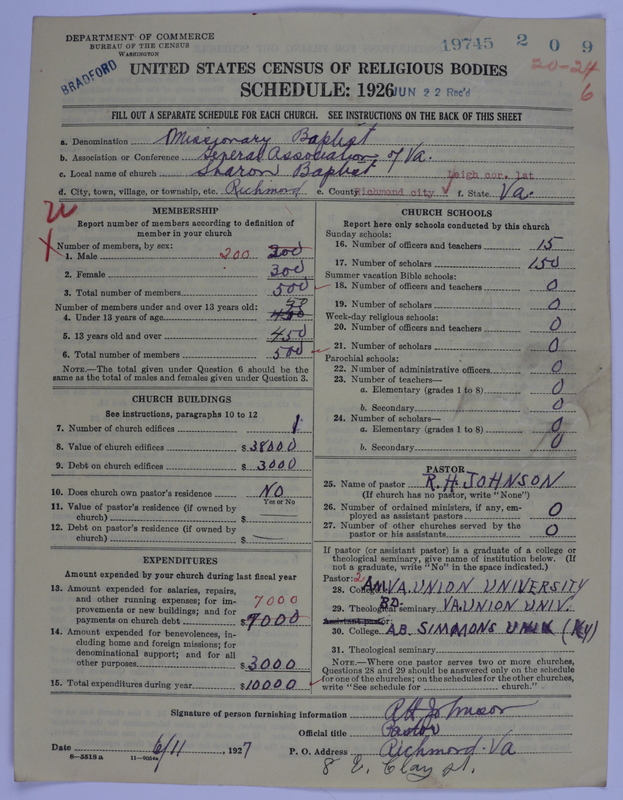 DEPARTMENT OF COMMERCE
BUREAU OF THE CENSUS
WASHINGTON
19745 2 0 9
20-24
6
BRADFORD
UNITED STATES CENSUS OF RELIGIOUS BODIES
SCHEDULE: 1926
JUN 22 Rec'd
FILL OUT A SEPARATE SCHEDULE FOR EACH CHURCH. SEE INSTRUCTIONS ON THE BACK OF THIS SHEET
a. Denomination Missionary Baptist
b. Association or Conference General Association of Va.
c. Local name of church Sharon Baptist Leigh cor. 1st
d. City, town, village, or township, etc. Richmond e. County Richmond city f. State Va.
MEMBERSHIP
Report number of members according to definition of member in your church
Number of members, by sex:
1. Male 200 200
2. Female 300
3. Total number of members 500
Number of members under and over 13 years old:
4. Under 13 years of age 50
5. 13 years old and over 450
6. Total number of members 500
NOTE.—The total given under Question 6 should be the same as the total of males and females given under Question 3.
CHURCH BUILDINGS
See instructions, paragraphs 10 to 12
7. Number of church edifices 1
8. Value of church edifices $ 38000
9. Debt on church edifices $ 3000
10. Does church own pastor's residence NO
Yes or No
11. Value of pastor's residence (if owned by church) $ —
12. Debt on pastor's residence (if owned by church) $ —
EXPENDITURES
Amount expended by your church during last fiscal year
13. Amount expended for salaries, repairs, and other running expenses; for improvements or new buildings; and for payments on church debt 7000 $ 7000
14. Amount expended for benevolences, including home and foreign missions; for denominational support; and for all other purposes $ 3000
15. Total expenditures during year $ 10000
CHURCH SCHOOLS
Report here only schools conducted by this church
Sunday schools:
16. Number of officers and teachers 15
17. Number of scholars 150
Summer vacation Bible schools:
18. Number of officers and teachers 0
19. Number of scholars 0
Week-day religious schools:
20. Number of officers and teachers 0
21. Number of scholars 0
Parochial schools:
22. Number of administrative officers 0
23. Number of teachers—
a. Elementary (grades 1 to 8) 0
b. Secondary 0
24. Number of scholars—
a. Elementary (grades 1 to 8) 0
b. Secondary 0
PASTOR
25. Name of pastor R.H. JOHNSON
(If church has no pastor, write "None")
26. Number of ordained ministers, if any, employed as assistant pastors 0
27. Number of other churches served by the pastor or his assistants 0
If pastor (or assistant pastor) is a graduate of a college or theological seminary, give name of institution below. (If not a graduate, write "No" in the space indicated.)
Pastor: 2
28. College AM VA. UNION UNIVERSITY
29. Theological seminary BD. VA UNION UNIV.
Assistant pastor:
30. College AB. SIMMONS UNIV (KY)
31. Theological seminary
NOTE.—Where one pastor serves two or more churches, Questions 28 and 29 should be answered only on the schedule for one of the churches; on the schedules for the other churches, write "See schedule for church."
Signature of person furnishing information R H Johnson
Official title Pastor
Date 6/11, 1927 P. O. Address Richmond Va
8—5518 a 11—9054a
8 E. Clay st.